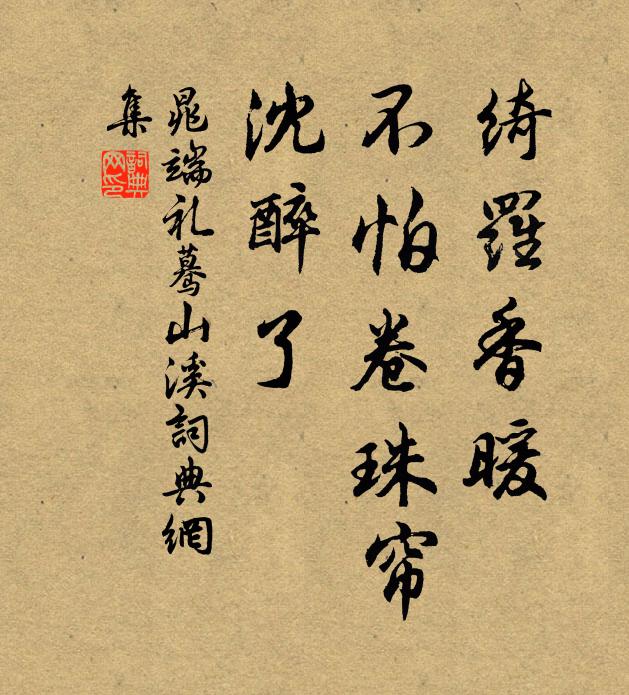 绮羅香暖
不怕卷珠帘
沈醉了
晁端礼蓦山溪詞典網
集
詞典網印